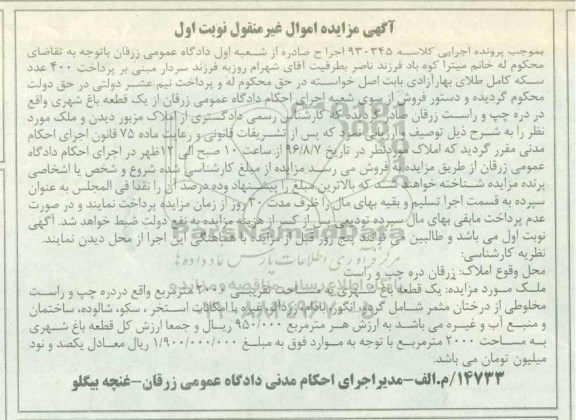 آگهی مزایده اموال غیرمنقول نوبت اول
بموجب پرونده اجرایی کلاسه ۹۳۰۳۴۵ اجرا ح صادره از شعبه اول دادگاه عمومی زرقان باتوجه به تقاضای
محکوم له خانم میترا کوه باد فرزند ناصر بطرفیت آقای شهرام روزبه فرزند سردار مبنی بر پرداخت ۴۰۰ عدد
سکه کامل طلای بهارآزادی بابت اصل خواسته در حق محکوم له و پرداخت نیم عشر دولتی در حق دولت
محکوم گردیده و دستور فروش از سوی شعبه اجرای احکام دادگاه عمومی زرقان از یک قطعه باغ شهری واقع
در دره چپ و راست زرقان صادر گردیده که کارشناس رسمی دادگستری از املاک مزبور دیدن و ملک مورد
نظر را به شرح ذیل توصیف و ارزیابی نمود که پس از تشریفات قانونی و رعایت ماده ۷۵ قانون اجرای احکام
مدنی مقرر گردید که املاک موردنظر در تاریخ ۹۶/۸/۷ از ساعت ۱۰ صبح الی ۱۲ظهر در اجرای احکام دادگاه
عمومی زرقان از طریق مزایده به فروش می رسد مزایده از مبلغ کارشناسی شده شروع و شخص یا اشخاصی
برنده مزایده شناخته خواهند شد که بالاترین مبلغ را پیشنهاد وده درصد آن را نقدا فی المجلس به عنوان
سپرده به قسمت اجرا تسلیم و بقیه بهای مال را ظرف مدت ۳۰ روز از زمان مزایده پرداخت نمایند و در صورت
عدم پرداخت مابقی بهای مال سپرده تودیعی پس از کسر از هزینه مزایده به نفع دولت ضبط خواهد شد. آگهی
نوبت اول می باشد و طالبین می توانند پنج روز قبل از مزایده با هماهنگی این اجرا از محل دیدن نمایند.
نظریه کارشناسی:
محل وقوع املاک: زرقان دره چپ و راست
ملک مورد مزایده: یک قطعه باغ شهری به مساحت تقریبی ۲۰۰۰ مترمربع واقع دردره چپ و راست
مخلوطی از درختان مثمر شامل گردو، انگور، بادام، زردآلو غیره با امکانات استخر، سکو، شالوده، ساختمان
و منبع آب و غیره می باشد به ارزش هر مترمربع ۹۵۰/۰۰۰ ریال و جمعا ارزش کل قطعه باغ شهری
به مساحت ۲۰۰۰ مترمربع با توجه به موارد فوق به مبلغ ۱/۹۰۰/۰۰۰/۰۰۰ ریال معادل یکصد و نود
میلیون تومان می باشد.
۱۴۷۳۳/م.الف-مدیراجرای احکام مدنی دادگاه عمومی زرقان-غنچه بیگلو
ParsNamadData